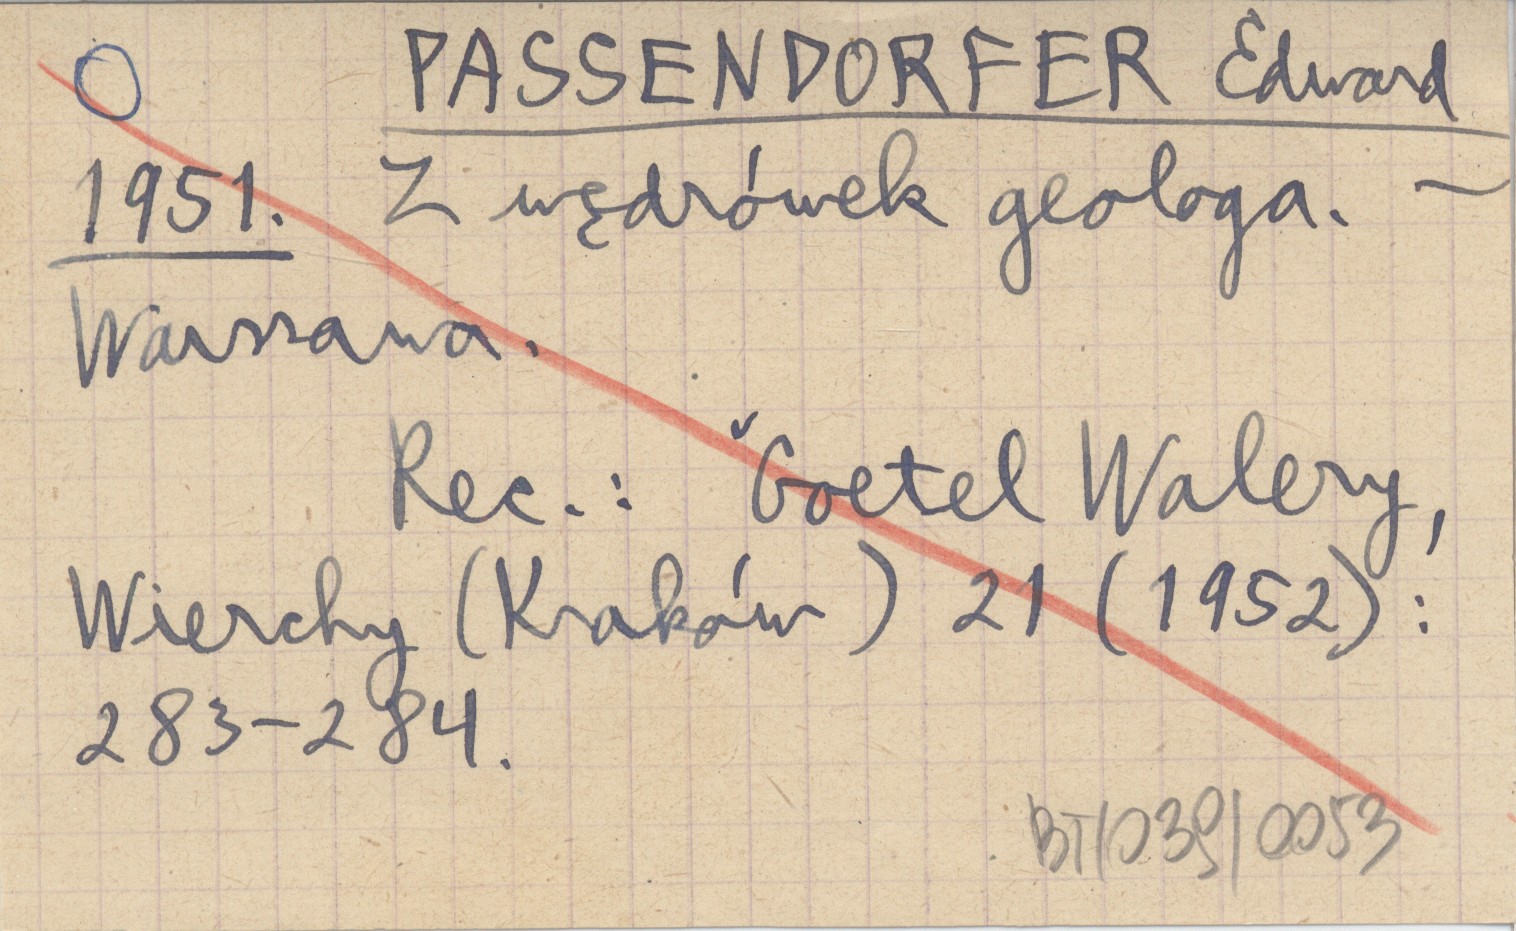 PASSENDORFER Edward
1951. Z wędrówek geologa. –
Warszawa.
Rec.: Goetel Walery,
Wierchy (Kraków) 21 (1952):
283-284.
BT/039/0053